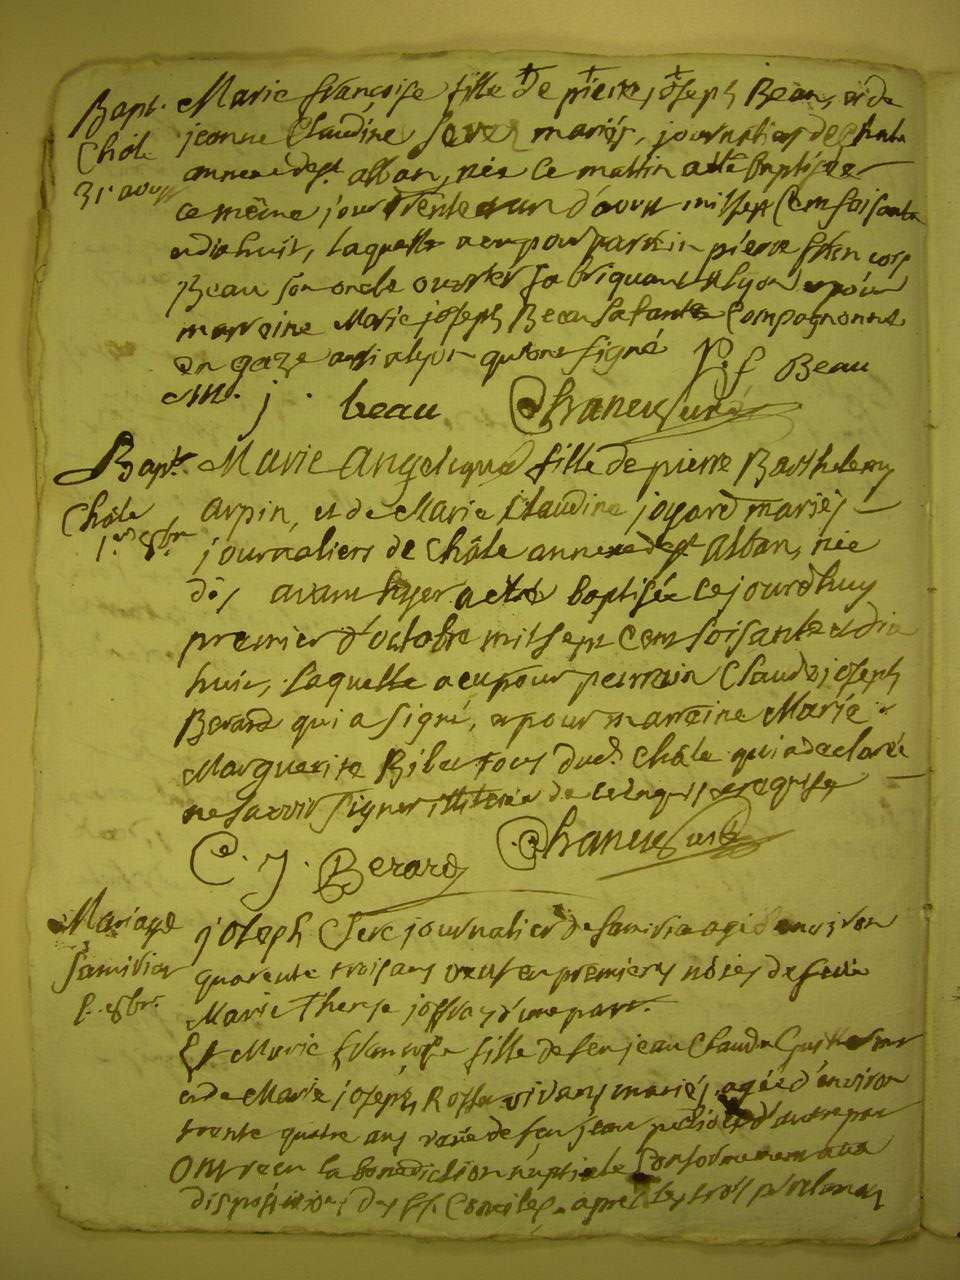 Bapt. Marie françoise fille de pierre joseph Beau, et de
Châle jeanne Claudine mariés, journaliers de Chale
31 aoust annexe de st alban, née ce mattin a été baptisée
ce même jour trente et un d'aoust mil sept Cens soisante
et dix huit, laquelle a eu pour parrein pierre
Beau son oncle ouvrier fabriquant a lyon et pour
marreine Marie joseph Beau sa tante Compagnonne
en gaze aussi a lyon qui ont signé P. f Beau
M. j. beau Chaneu Curé
Bapt. Marie Angelique fille de pierre Barthelemy
Châle arpin, et de Marie Claudine joyard mariés
1.er 8bre journaliers de Châle annexe de st Alban, née
dès avant hyer a eté baptisée ce jourdhuy
premier d'octobre mil sept Cens soisante et dix
huit, laquelle a eu pour parrain Claude joseph
Berard qui a signé, et pour marreine Marie
Marguerite du d. Châle qui a declaré
ne savoir signer de ce enquise et requise
C. J. Berard Chaneu Curé
Mariage joseph journalier de Samiria agé d'environ
Samiria quarente trois ans veuf en premieres nôces de feüe
8bre Marie Therese joffray d'une part.
Et Marie françoise fille de feu jean Claude
et de Marie joseph vivans mariés, agée d'environ
trente quatre ans veuve de feu jean d'autre part
Ont reçu la benediction nuptiale Conformement aux
dispositions des Conciles, apres les trois